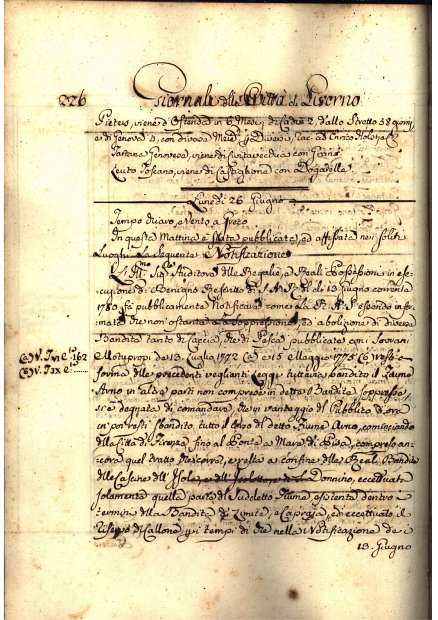 226 Giornale della Città di Livorno
Pieters, viene d'Ostenda in 6 Mesi, di Cadice 2, dallo Stretto 58 giorni
e di Genova 3, con diverse Merci
Tartana Genovese, viene di Civitavecchia con Grano
Leuto Toscano, viene di Castiglione con Dogarella
Lunedì 26 Giugno
Tempo vario, e Vento a
In questa Mattina è stata pubblicata, ed affissata nei soliti
Luoghi la seguente Notificazione
Sigr. Auditore delle Regalie, e Reali Possessioni in ese
cuzione di Benigno Rescritto di S.A.R. de' 13 Giugno corrente
1780 fa pubblicamente Notificare come la R.A.S. essendo infor
mata che non ostante la soppressione, ed abolizione di diverse
Bandite tanto di Caccia, che di Pesca pubblicate con Sovrani
Motupropri de' 13. Luglio 1772 e 15 Maggio 1775
forma delle precedenti veglianti Leggi tuttavia bandito il Fiume
Arno in altre parti non comprese in dette Bandite soppresse,
si è degnata di comandare, che in vantaggio del Pubblico d'ora
resti sbandito tutto il corso del detto Fiume Arno, cominciando
dalla Città di Firenze fino al Ponte a Mare di Pisa, compreso an
cora quel tratto che scorre, e resta a confine delle Reali Bandite
delle Cascine dell'Isola, e dell' Donnino, eccettuata
solamente quella parte di suddetto Fiume esistente dentro i
termini della Bandita di Limite, e Capraja, ed eccettuato il
di Callone i tempi di che nella Notificazione de'
13. Giugno